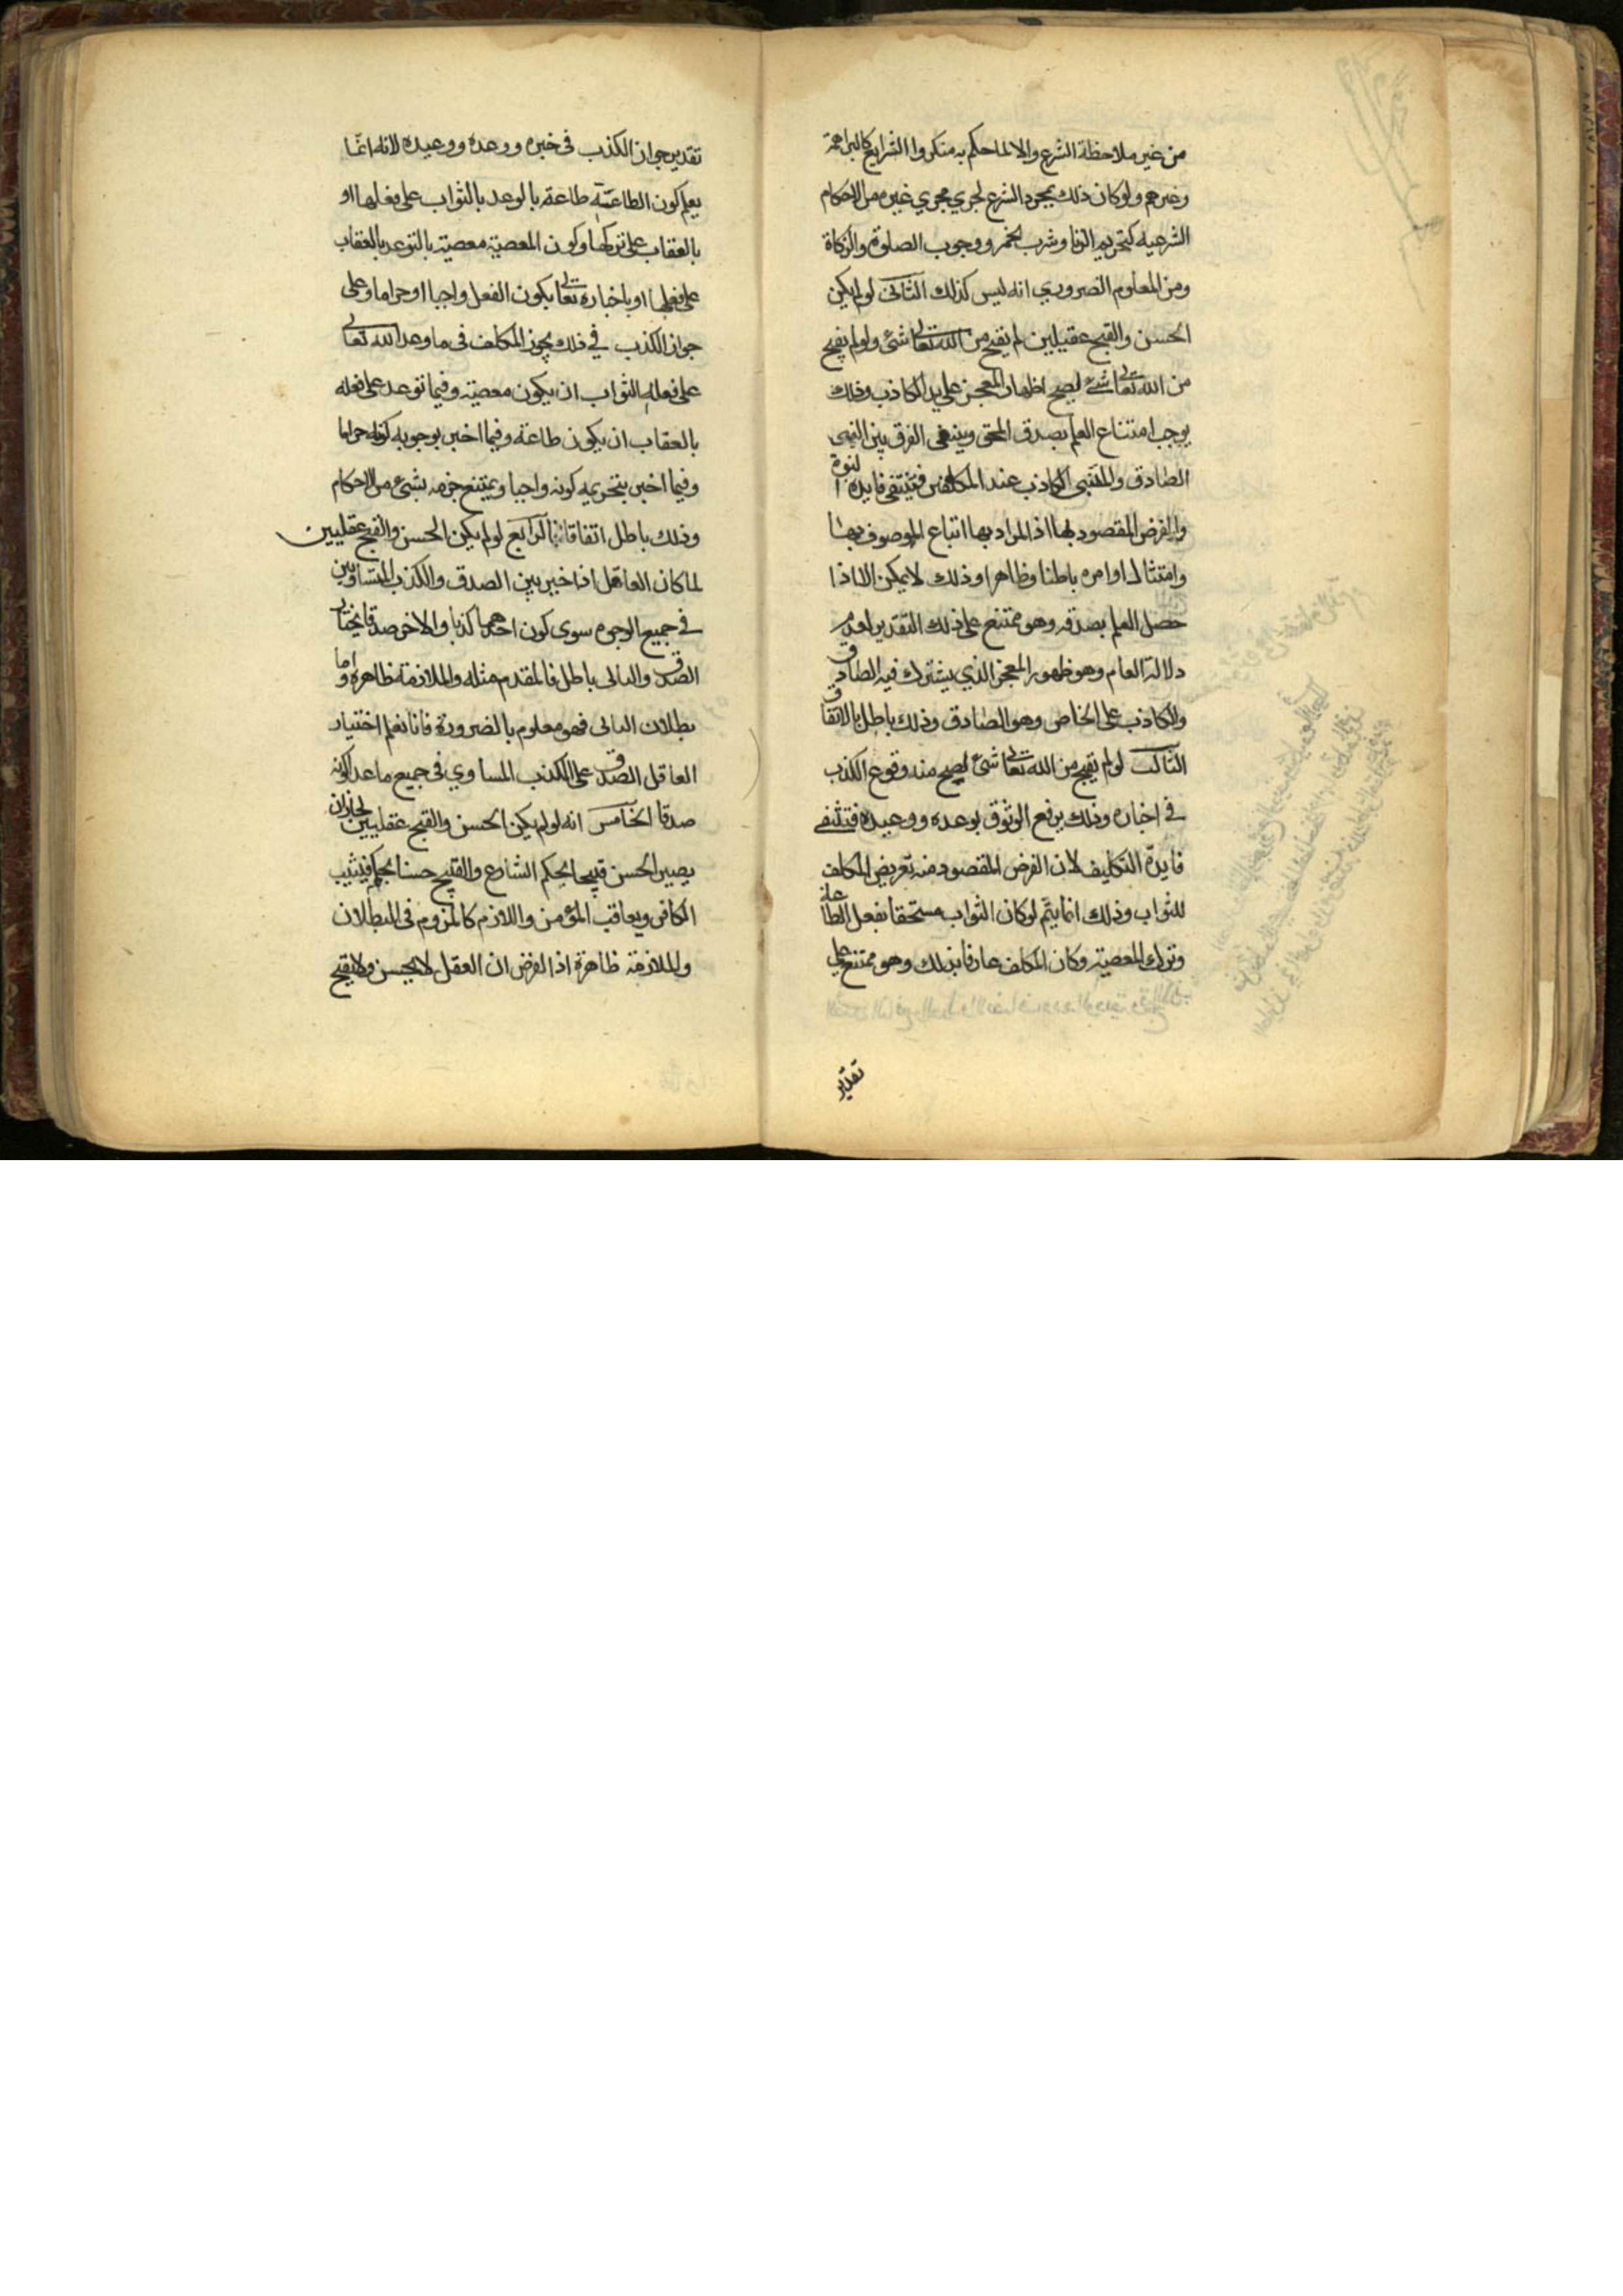 من غير ملاحظة الشرع والا لما حكم به منكروا الشرايع كالبراهمة
وغيرهم ولو كان ذلك بمجرد الشرع لجري مجري غيره من الاحكام
الشرعيه كتحريم الزنا وشرب الخمر ووجوب الصلوة والزكاة
ومن المعلوم الضروري انه ليس كذلك الثاني لو لم يكن
الحسن والقبح عقيلين لم يقبح من الله تعالى شئ ولو لم يقبح
من الله تعالى شئ لصح اظهار المعجز على يد الكاذب وذلك
يوجب امتناع العلم بصدق المحق وينتفى الفرق بين النبى
الصادق والمتنبى الكاذب عند المكلفين فتنتفى فايدة النبوة
والغرض المقصود بها اذ المراد بها اتباع الموصوف بها
وامتثال اوامره باطنا وظاهرا وذلك لا يمكن الا اذا
حصل العلم بصدقه وهو ممتنع على ذلك التقدير لعدم
دلالة العام وهو ظهور المعجز الذي يشترك فيه الصادق
والكاذب على الخاص وهو الصادق وذلك باطل بالاتفاق
الثالث لو لم يقبح من الله تعالى شئ لصح منه وقوع الكذب
في اخباره وذلك يرفع الوثوق بوعده ووعيده فتنتفي
فايدة التكليف لان الغرض المقصود منه تعريض المكلف
للثواب وذلك انما يتم لو كان الثواب مستحقا بفعل الطاعة
وترك المعصية وكان المكلف عارفا بذلك وهو ممتنع على
تقدير
تقدير جواز الكذب فى خبره ووعده ووعيده لانه انما
يعلم كون الطاعة طاعة بالوعد بالثواب على فعلها او
بالعقاب على تركها وكون المعصية معصية بالتوعد بالعقاب
على فعلها او باخباره تعالى بكون الفعل واجبا او حراما وعلى
جواز الكذب في ذلك يجوز المكلف فى ما وعد الله تعالى
على فعله الثواب ان يكون معصية وفيما توعد على فعله
بالعقاب ان يكون طاعة وفيما اخبر بوجوبه كونه حراما
وفيما اخبر بتحريمه كونه واجبا ويمتنع جزمه بشئ من الاحكام
وذلك باطل اتفاقا الرابع لو لم يكن الحسن والقبح عقليين
لما كان العاقل اذا خير بين الصدق والكذب المتساويين
في جميع الوجوه سوى كون احدهما كذبا والاخر صدقا يختار
الصدق والتالى باطل فالمقدم مثله والملازمة ظاهرة واما
بطلان التالى فهو معلوم بالضرورة فانا نعلم اختيار
العاقل الصدق على الكذب المساوي فى جميع ما عدا كونه
صدقا الخامس انه لو لم يكن الحسن والقبح عقليين لجاز ان
يصير الحسن قبيحا بحكم الشارع والقبيح حسنا بحكمه فيثيب
الكافر ويعاقب المؤمن واللازم كالملزوم فى البطلان
والملازمة ظاهرة اذ الفرض ان العقل لا يحسن ولا يقبح